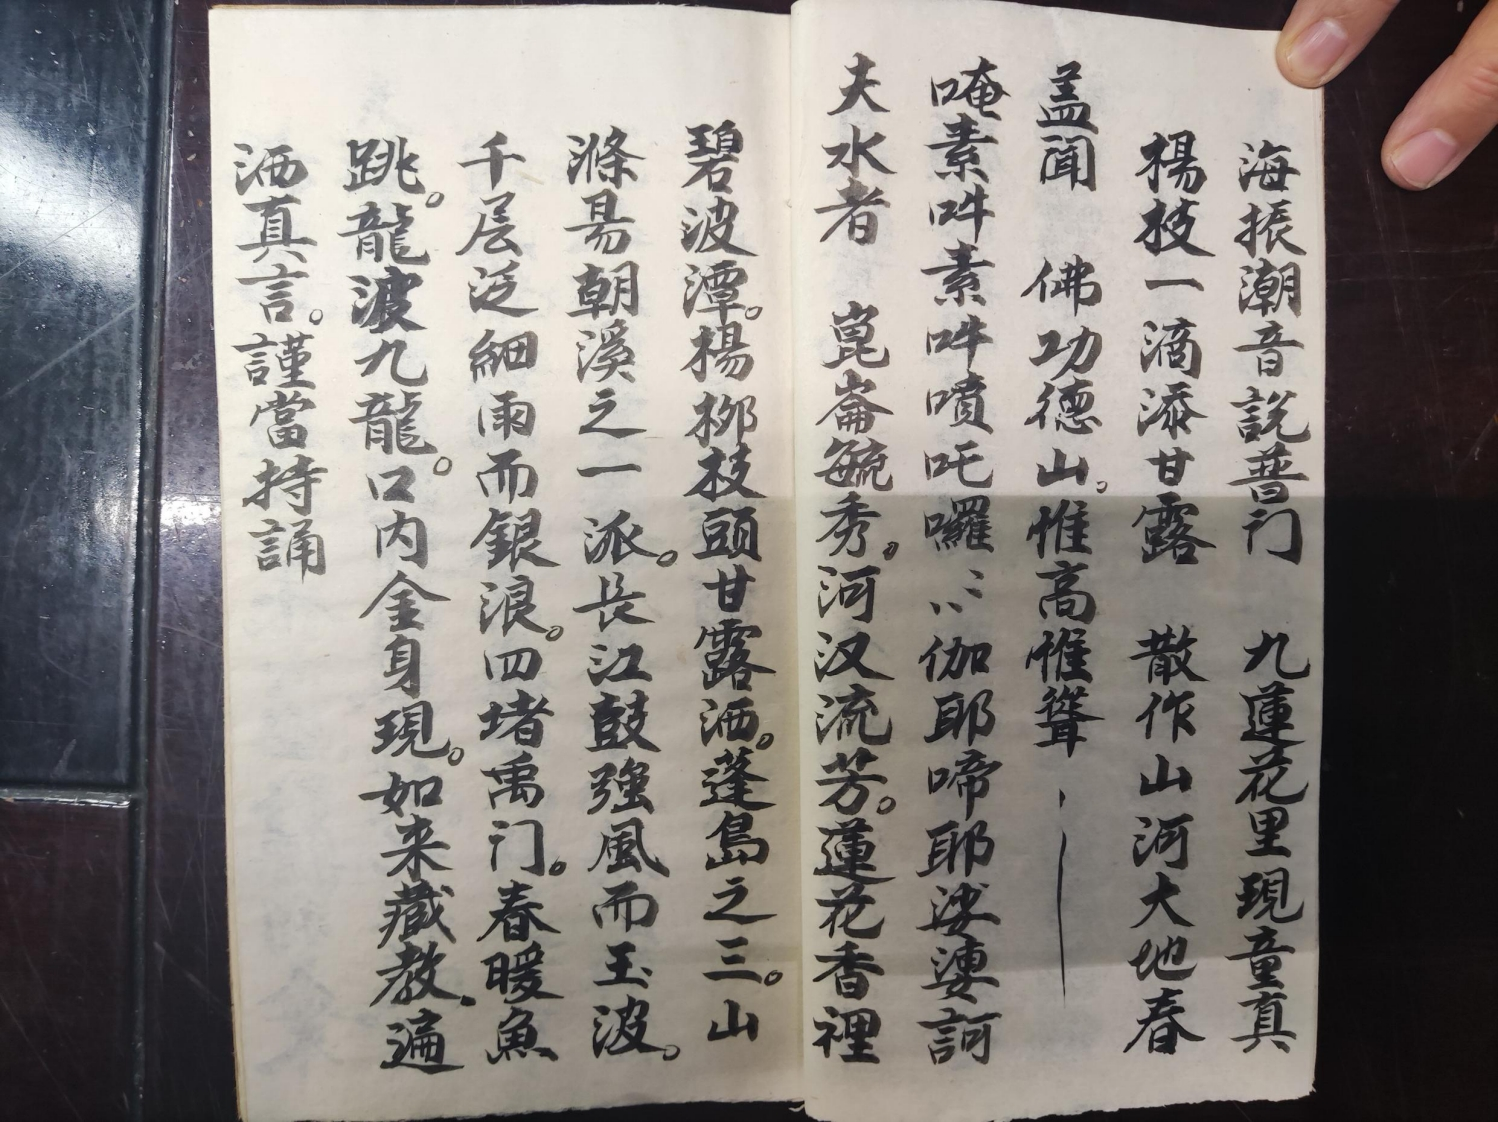 海振潮音說普门　九蓮花里現童真
楊枝一滴添甘露　散作山河大地春
盖闻　佛功德山。惟高惟聳
唵素吽素吽噴吒囉⺀⺀伽耶啼耶娑婁訶
夫水者　崑崙毓秀。河汉流芳。蓮花香裡
碧波潭。楊柳枝頭甘露洒。蓬島之三。山
滌昜朝溪之一派。長江鼓強風而玉波。
千层泛細雨而銀浪。四堵禹门。春暖魚
跳。龍波九龍。口内金身現。如来藏教.遍
洒真言。謹當持誦